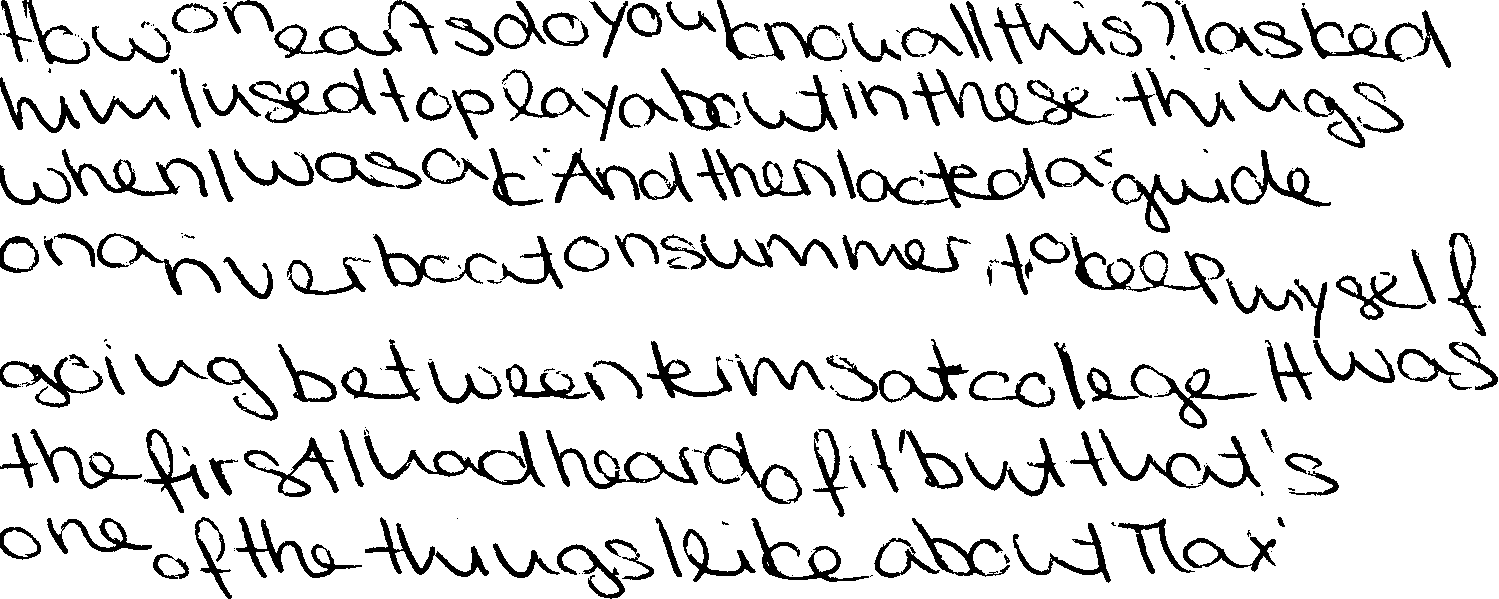 How on earts do you know all this? I asked
him I used to play about in these things
when I was a k " And then I acted a " guide
on a river boat on summer , to keep myself
going between terms at colege It was
the first I had heard of it ' but that's
one of the things I like about Max '